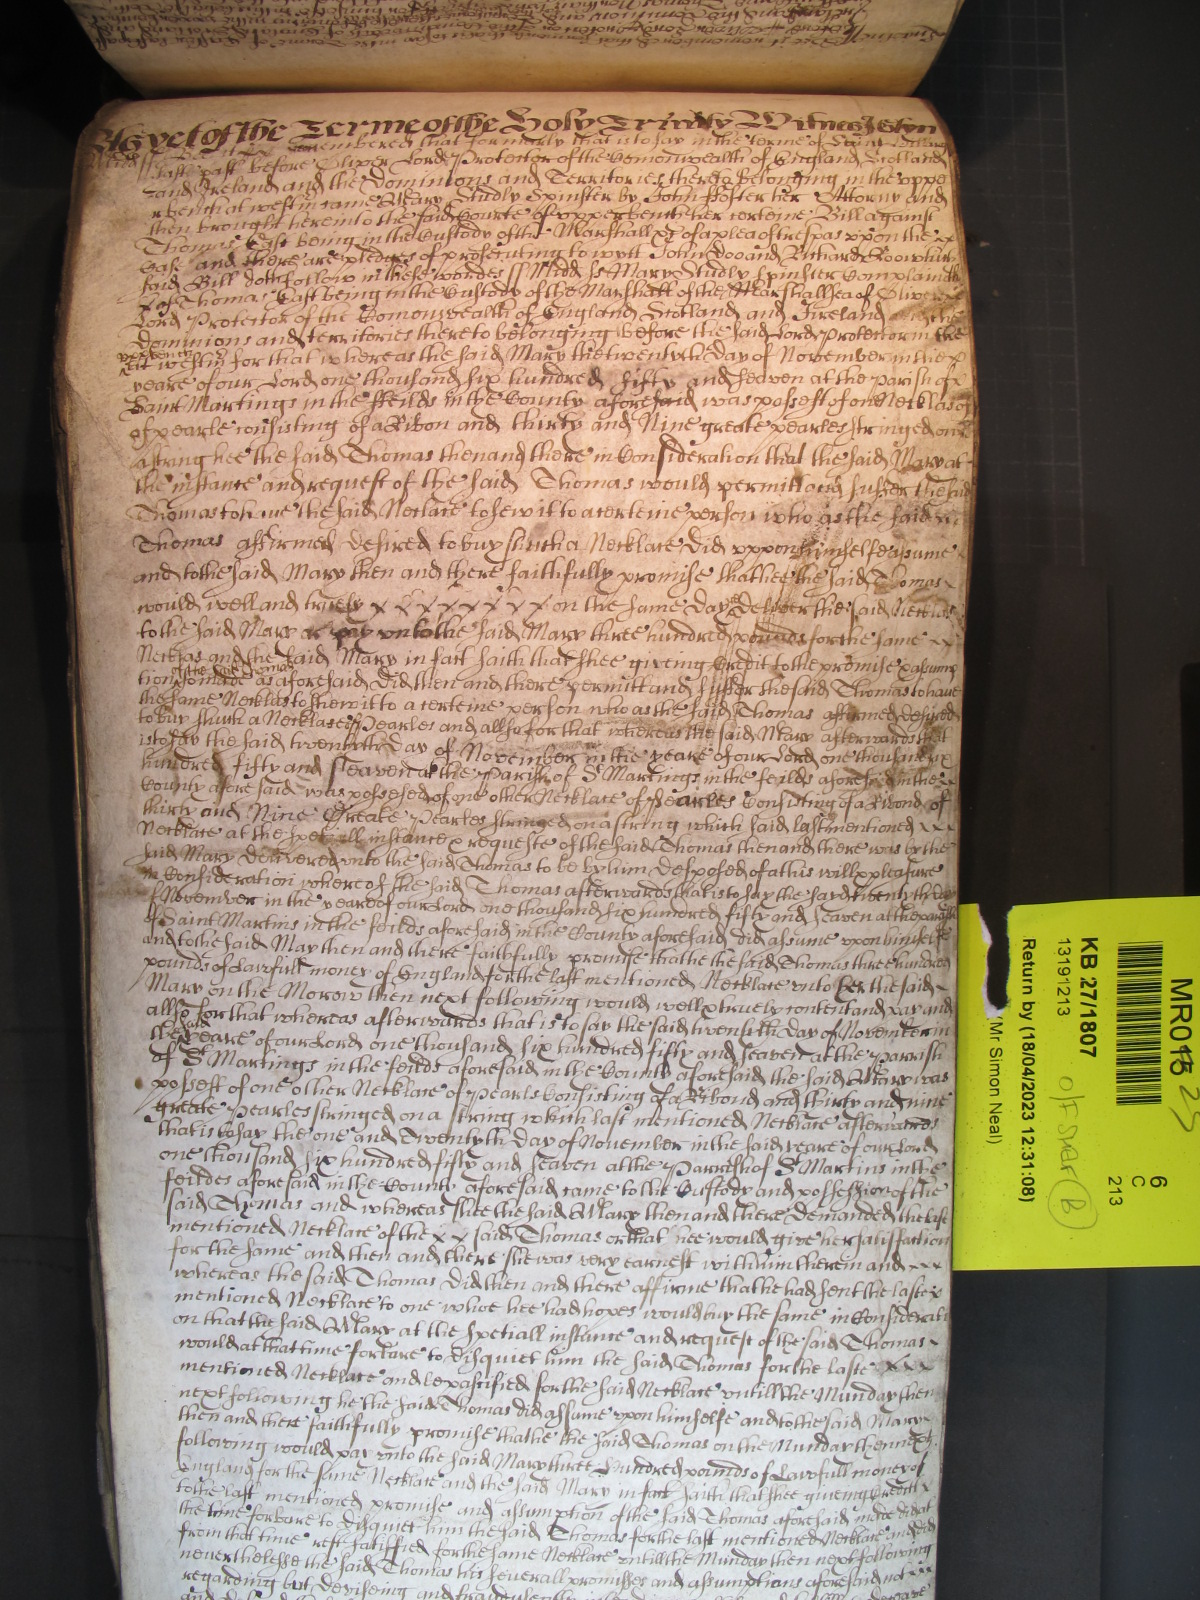 As yet of the Terme of the Holy Trinity Witnes
membered that formerly that is to say in the terme of Saint
last past before Oliver Lord Protector of the Comonwealth of England Scotland
and Ireland and the Dominions and Territories thereto belonging in the uppe
r bench at westm came Mary Studly Spinster by John ffoster her Attorny and
then brought here into the said Courte of upper bench her certeine Bill against
Thomas East being in the Custody of the Marshall &c of a plea of trespas uppon the xx
Case and there are pledges of prosecuting to wytt John Doo and Richard Roo which
said Bill doth follow in these wordes ss Midd ss Mary Studly Spinster Complaineth
of Thomas East being in the Custody of the Marshall of the Marshallsea of Oliver
Lord Protector of the Comonwealth of England Scotland and Ireland and the
dominions and territories thereto belonging before the said Lord Protector in the
upp bench
at westm for that whereas the said Mary the twentyth day of November in the x
yeare of our Lord one thousand six hundred fifty and seaven at the Parish of x
Saint Martings in the ffeilds in the County aforesaid was possest of one Necklas of
of pearle consisting of a Ribon and thirty and Nine greate pearles stringed on
a string hee the said Thomas then and there in Consideration that the said Mary at
the instance and request of the said Thomas would permitt and suffer the said
Thomas to have the said Necklace to shew it to a certeine person who as the said
Thomas affirmed desired to buy such a Necklace did uppon himselfe assume
and to the said Mary then and there faithfully promise that hee the said Thomas x
would well and truely x x x x x x x on the same day deliver the said Necklas
to the said Mary or pay unto the said Mary three hundred pounds for the same xx
Necklas and the said Mary in fact saith that shee giving Credit to the promise & assump
of the said Thomas
tion so made as aforesaid did then and there permitt and suffer the said Thomas to have
the same Necklas to shew it to a certeine person who as the said Thomas affirmed desired
to buy such a Necklace of Pearles and allso for that whereas the said Mary afterwards that
is to say the said twentyth day of November in the yeare of our Lord one thousand six
hundred fifty and seaven at the Parish of St Martings in the feilds aforesaid in the x
County aforesaid was possesed of one other Necklace of Pearles Consisting of a Ribond of
thirty and Nine Greate Pearles stringed on a string which said last mentioned xx
Necklace at the spetiall instance & requeste of the said Thomas then and there was by the
said Mary delivered unto the said Thomas to be by him desposed of at his will & pleasure
in Consideration whereof he the said Thomas afterwards that is to say the sayd twentyth day
of November in the yeare of our Lord one thousand six hundred fifty and seaven at the parish
of Saint Martins in the feilds aforesaid in the County aforesaid did assume upon himselfe
and to the said Mary then and there faithfully promise that he the said Thomas three hundred
pounds of Lawfull money of England for the last mentioned Necklace unto her the said
Mary on the Morow then next following would well & truely content and pay and
allso for that whereas afterwards that is to say the said twentieth day of November in
said
the yeare of our Lord one thousand six hundred fifty and seaven at the Parrish
of St Martings in the feilds aforesaid in the County aforesaid the said Mary was
possest of one other Necklace of Pearls Consisting of a Ribond and thirty and nine
greate Pearles stringed on a string which last mentioned Necklace afterwards
that is to say the one and Twentyth day of November in the said yeare of our Lord
one thousand six hundred fifty and seaven at the Parrish of St Martins in the
feildes aforesaid in the County aforesaid came to the Custody and possession of the
said Thomas and whereas shee the said Mary then and there demanded the last
mentioned Necklace of the x x said Thomas or that hee would give her satisfaction
for the same and then and there shee was very earnest with him therein and xxx
whereas the said Thomas did then and there affirme that he had sent the last x
mentioned Necklace to one whoe hee had hopes would buy the same in Considerati
on that the said Mary at the spetiall instance and request of the said Thomas x
would at that time forbare to disquiet him the said Thomas for the laste x x x
mentioned Necklace and be pacified for the said Necklace untill the Munday then
next following he the said Thomas did assume upon himselfe and to the said Mary
then and there faithfully promise that he the said Thomas on the Munday then next
following would pay unto the said Mary three hundred pounds of Lawfull money of
England for the same Necklace and the said Mary in fact saith that shee giveing Creditt
to the last mentioned promise and assumption of the said Thomas aforesaid made did at
the time forbare to disquiet him the said Thomas for the last mentioned Necklace and did
from that time rest satisfied for the same Necklace untill the Munday then next following
neverthelesse the said Thomas his severall promisses and assumptions aforesaid not xxx
regarding but deviseing and fraudulently
MR013
6
C
213
KB 27/1807
13191213
Return by (18/04/2023 12:31:08)
Mr Simon Neal)